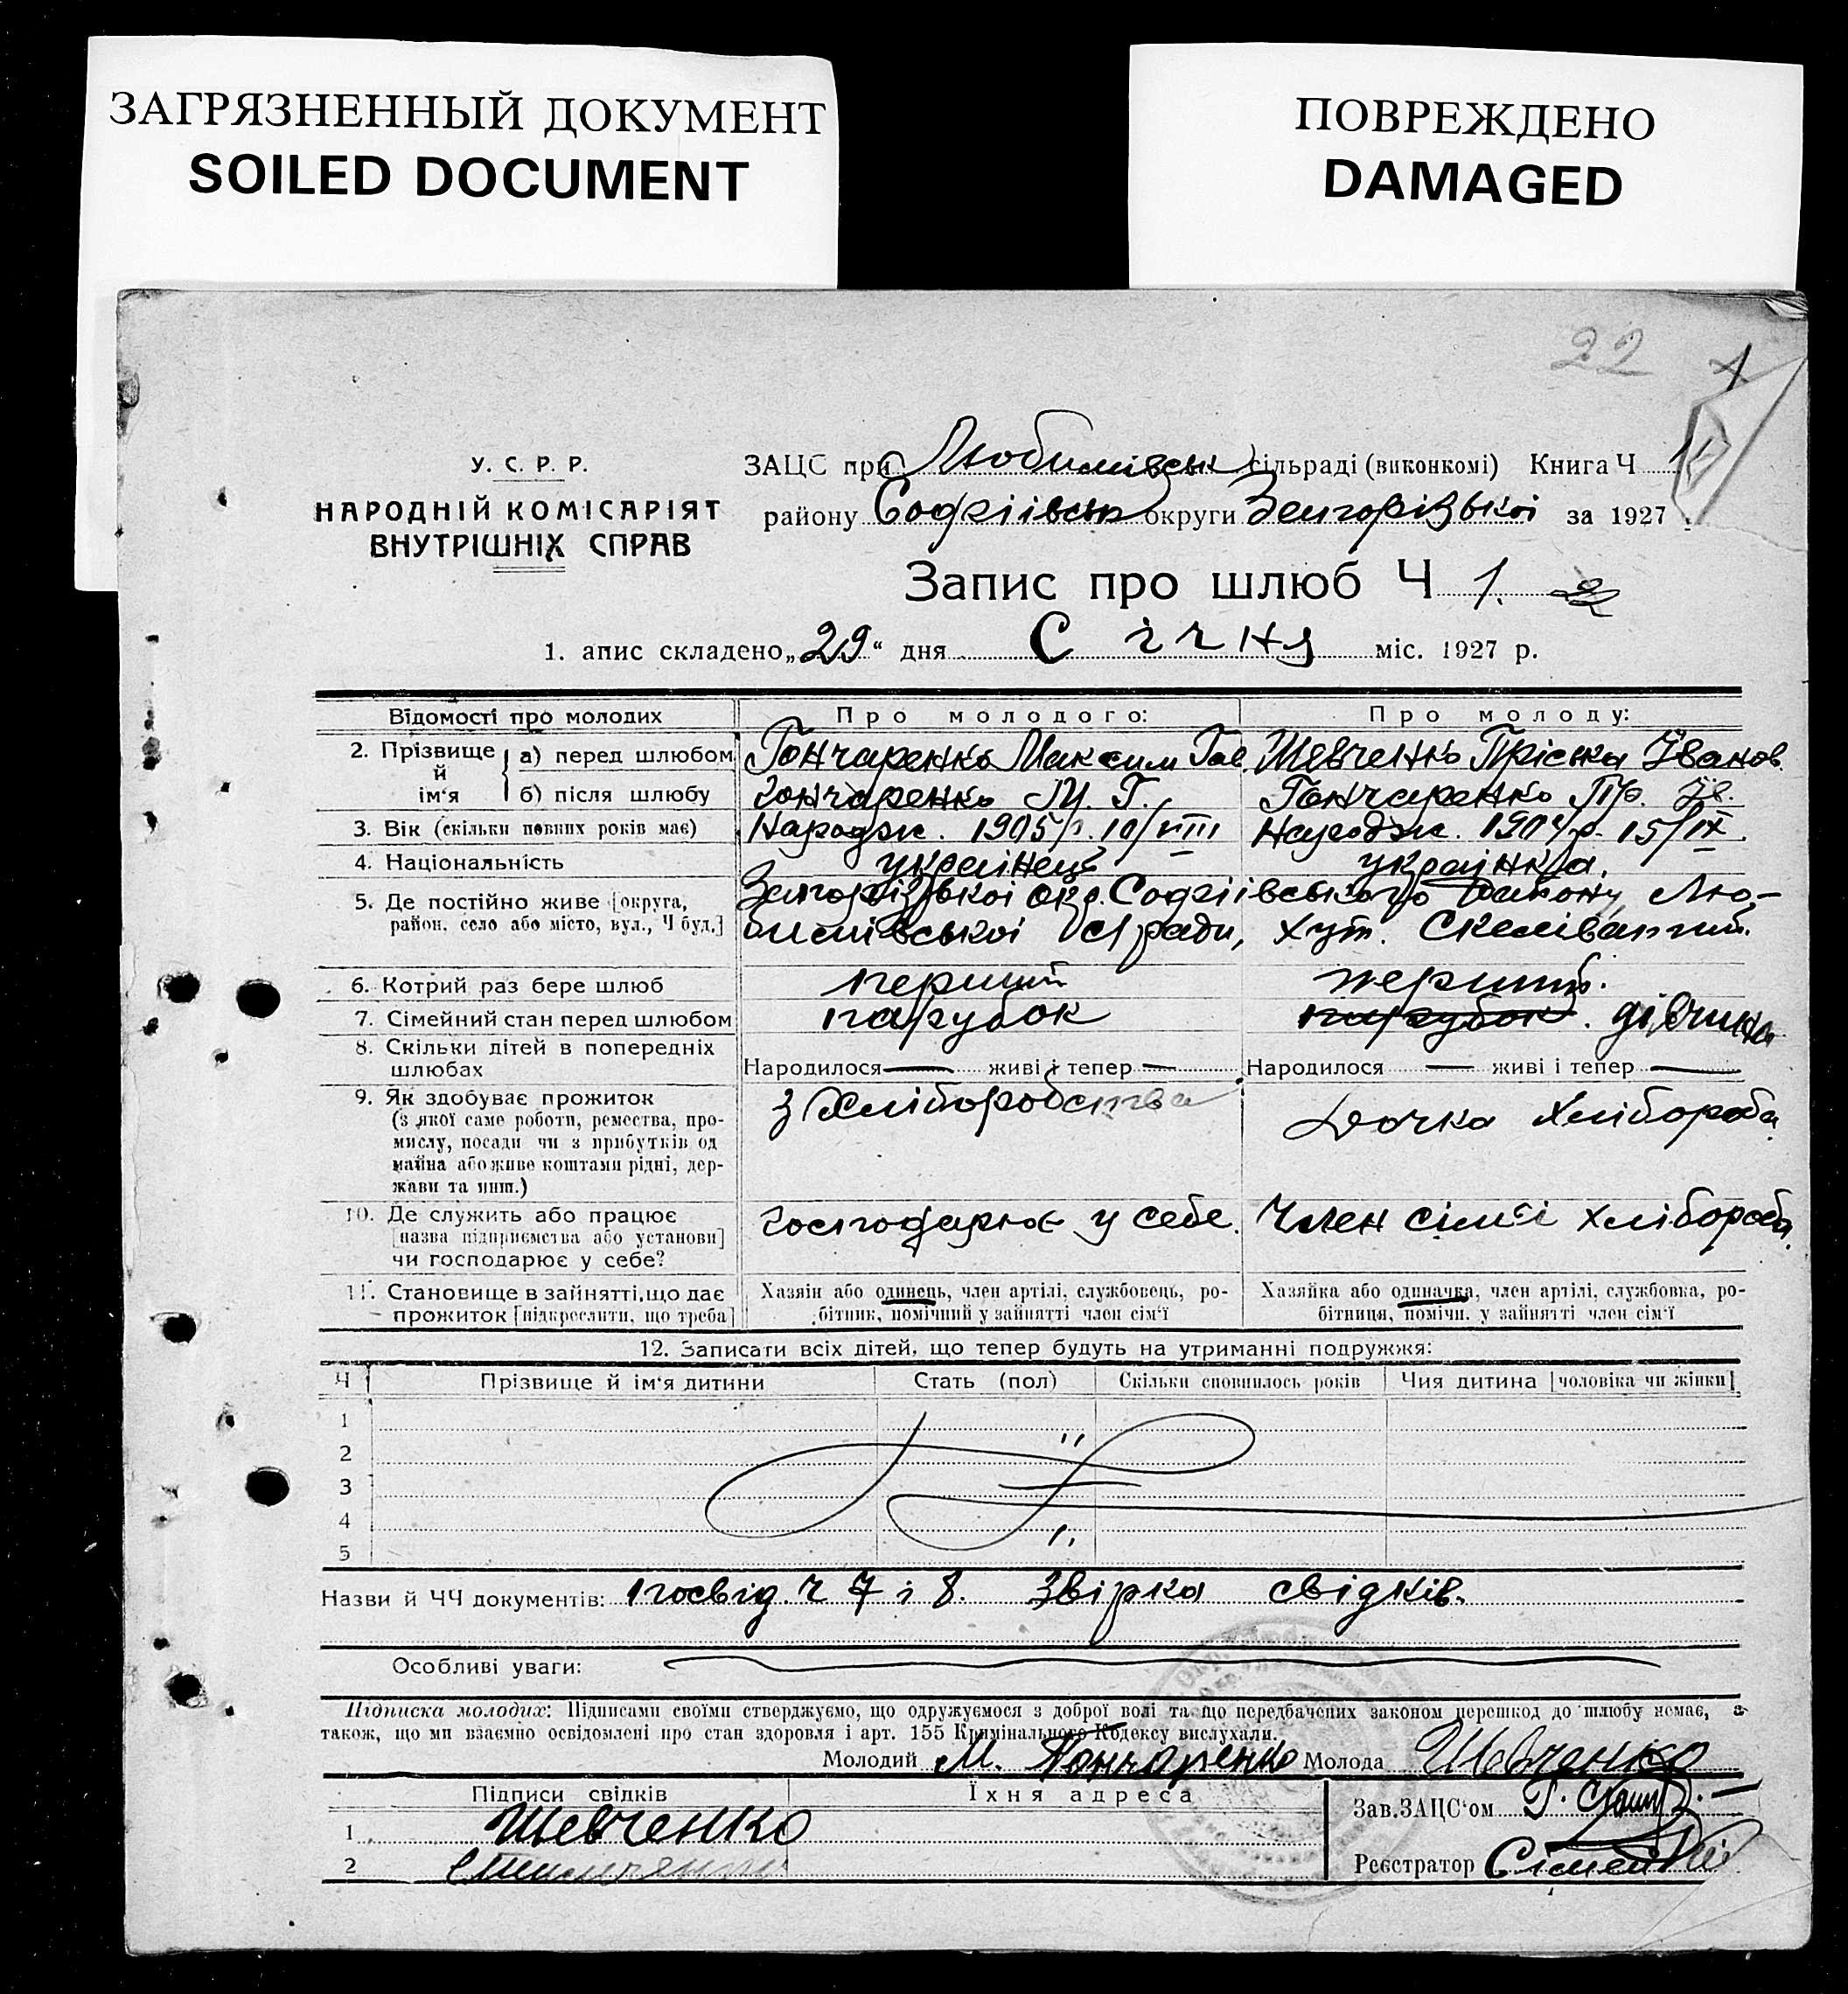 ЗАГРЯЗНЕННЫЙ ДОКУМЕНТ
SOILED DOCUMENT
ПОВРЕЖДЕНО
DAMAGED
22
1
У. С. Р. Р.
НАРОДНІЙ КОМІСАРІЯТ
ВНУТРІШНІХ СПРАВ
ЗАЦС при Любимівськ сільраді (виконкомі) Книга Ч 1
району Софіівськ округи Запорізькоі за 1927
Запис про шлюб Ч 1.
1. апис складено „29“ дня Січня міс. 1927 р.
Відомості про молодих Про молодого: Про молоду:
2. Прізвище й ім‘я а) перед шлюбом Гончаренко Максим Гав. Шевченко Пріська Іванов.
б) після шлюбу Гончаренко М. Г. Гончаренко Пр. Ів.
3. Вік (скільки повних років має) Народж. 1905 р. 10/VIII Народж. 1904 р. 15/IX.
4. Національність украінець украінка.
5. Де постійно живе [округа, Запорізькоі окр. Софіівського району, Лю-
район, село або місто, вул., Ч буд.] бимівськоі с/ради, хут.
6. Котрий раз бере шлюб перший перший.
7. Сімейний стан перед шлюбом парубок парубок. дівчина
8. Скільки дітей в попередніх
шлюбах Народилося — живі і тепер — Народилося — живі і тепер —
9. Як здобуває прожиток з Хліборобства Дочка Хлібороба
(з якої саме роботи, ремества, про-
мислу, посади чи з прибутків од
майна або живе коштами рідні, дер-
жави та инш.)
10. Де служить або працює Господарює у себе. Член сімʼі хлібороба.
[назва підприємства або установи]
чи господарює у себе?
11. Становище в зайнятті, що дає Хазяін або одинець, член артілі, службовець, ро- Хазяйка або одиначка, член артілі, службовка, ро-
прожиток [підкреслити, що треба] бітник, помічний у зайнятті член сім‘ї бітниця, помічн. у зайнятті член сім‘ї
12. Записати всіх дітей, що тепер будуть на утриманні подружжя:
Ч Прізвище й ім‘я дитини Стать (пол) Скільки сповнилось років Чия дитина [чоловіка чи жінки]
1
2
3
4
5
Назви й ЧЧ документів: посвід. ч 7 і 8. Звірка свідків.
Особливі уваги:
Підписка молодих: Підписами своїми стверджуємо, що одружуємося з доброї волі та що передбачених законом перешкод до шлюбу немає, а
також, що ми взаємно освідомлені про стан здоровля і арт. 155 Кримінального Кодексу вислухали.
Молодий М. Гончаренко Молода Шевченко
Підписи свідків Їхня адреса
Зав.ЗАЦС‘ом Г.
1 Шевченко
2
Реєстратор